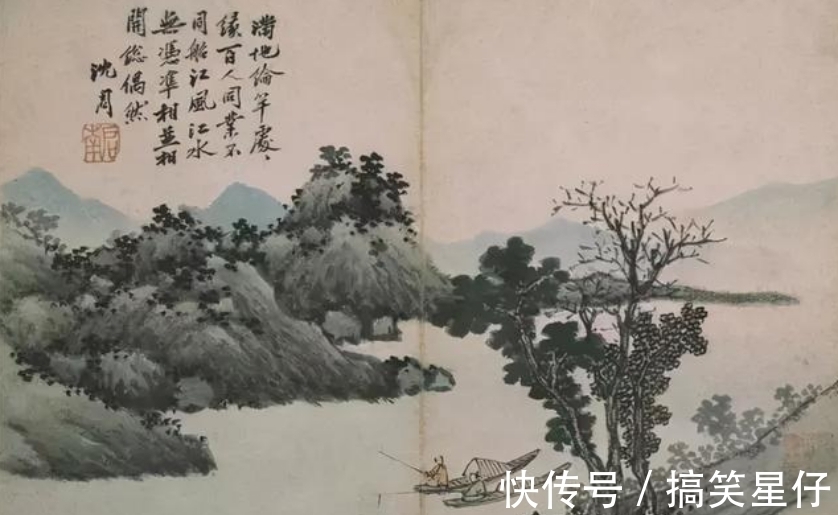 滿地綸竿處〻
緣百人同業不
同船江風江水
無憑準相並相
開總偶然
沈周
啓南
快传号 / 搞笑星仔